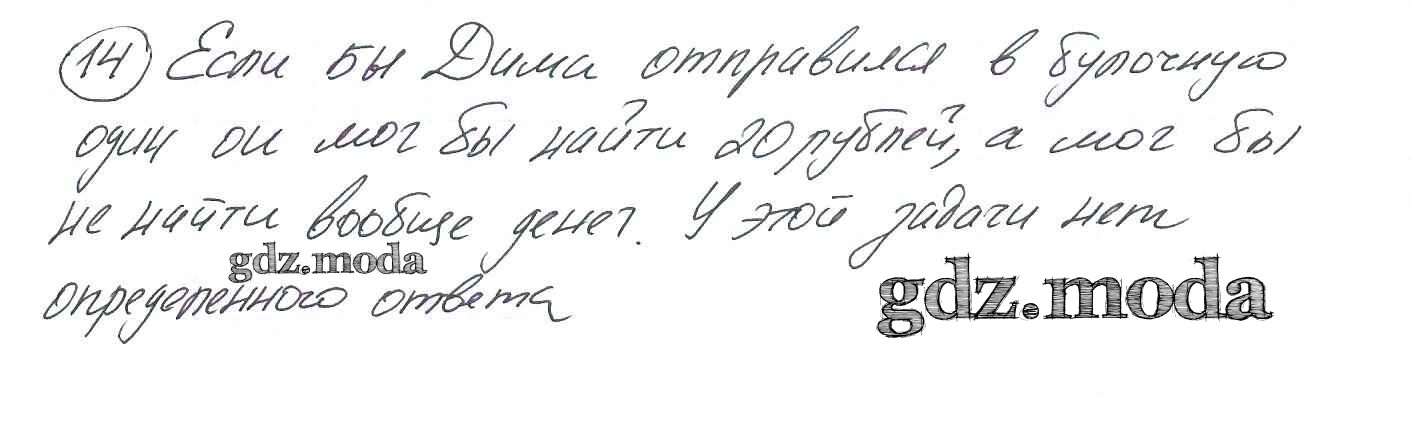 14 Если бы Дима отправился в булочную
один он мог бы найти 20 рублей, а мог бы
не найти вообще денег. У этой задачи нет
gdz.moda
определенного ответа
gdz.moda